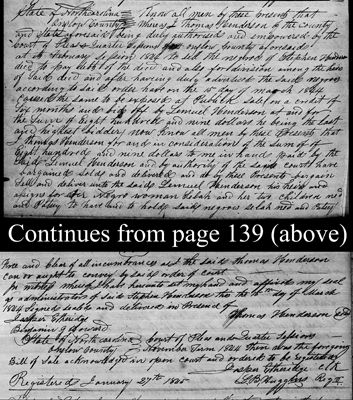 State of North Carolina } Know all men by these presents that
Onslow County } Whereas Thomas Henderson of the County
and State aforesaid being duly authorised and empowered by the
Court of Pleas & Quarter Sessions of Onslow County aforesaid
at February Sessions 1844 to sell the negroes of Stephen
to pay debts of the decd and also for division among the heirs
of said decd and after having duly advertised the said negroes
according to said order have on the 10 day of March 1844
caused the same to be exposed at Publick sale on a credit of
Six months and sold to Lemuel Henderson at and for
the sum of Eight hundred and nine dollars he being the last
and highest bidder now know all men by these presents that
I Thomas Henderson for and in consideration of the sum of
Eight hundred and nine dollars to me in hand paid by the
said Lemuel Henderson and by authority of the said court have
bargained sold and delivered and do by these presents bargain
sell and deliver unto the said Lemuel Henderson his heirs and
assigns for ever Negro woman Selah and her two children Ned
and Patsey to have and to hold said negroes Selah Ned and Patsey
Continues from page 139 (above)
free and clear of all incumbrances as I the said Thomas Henderson
can or ought to convey by said order of court
In witness whereof I have hereunto set my hand and affixed my seal
as administrator of said Stephen Henderson this the 10th day of March
1844 signed sealed and delivered in presence of
Jasper Etheridge Thomas Henderson
Benjamin
State of North Carolina } Court of Pleas and Quarter Sessions
Onslow County } November Term 1844 Then was the foregoing
Bill of Sale acknowledged in open court and ordered to be registered
Jasper Etheridge Clk
Registered January 27th 1845